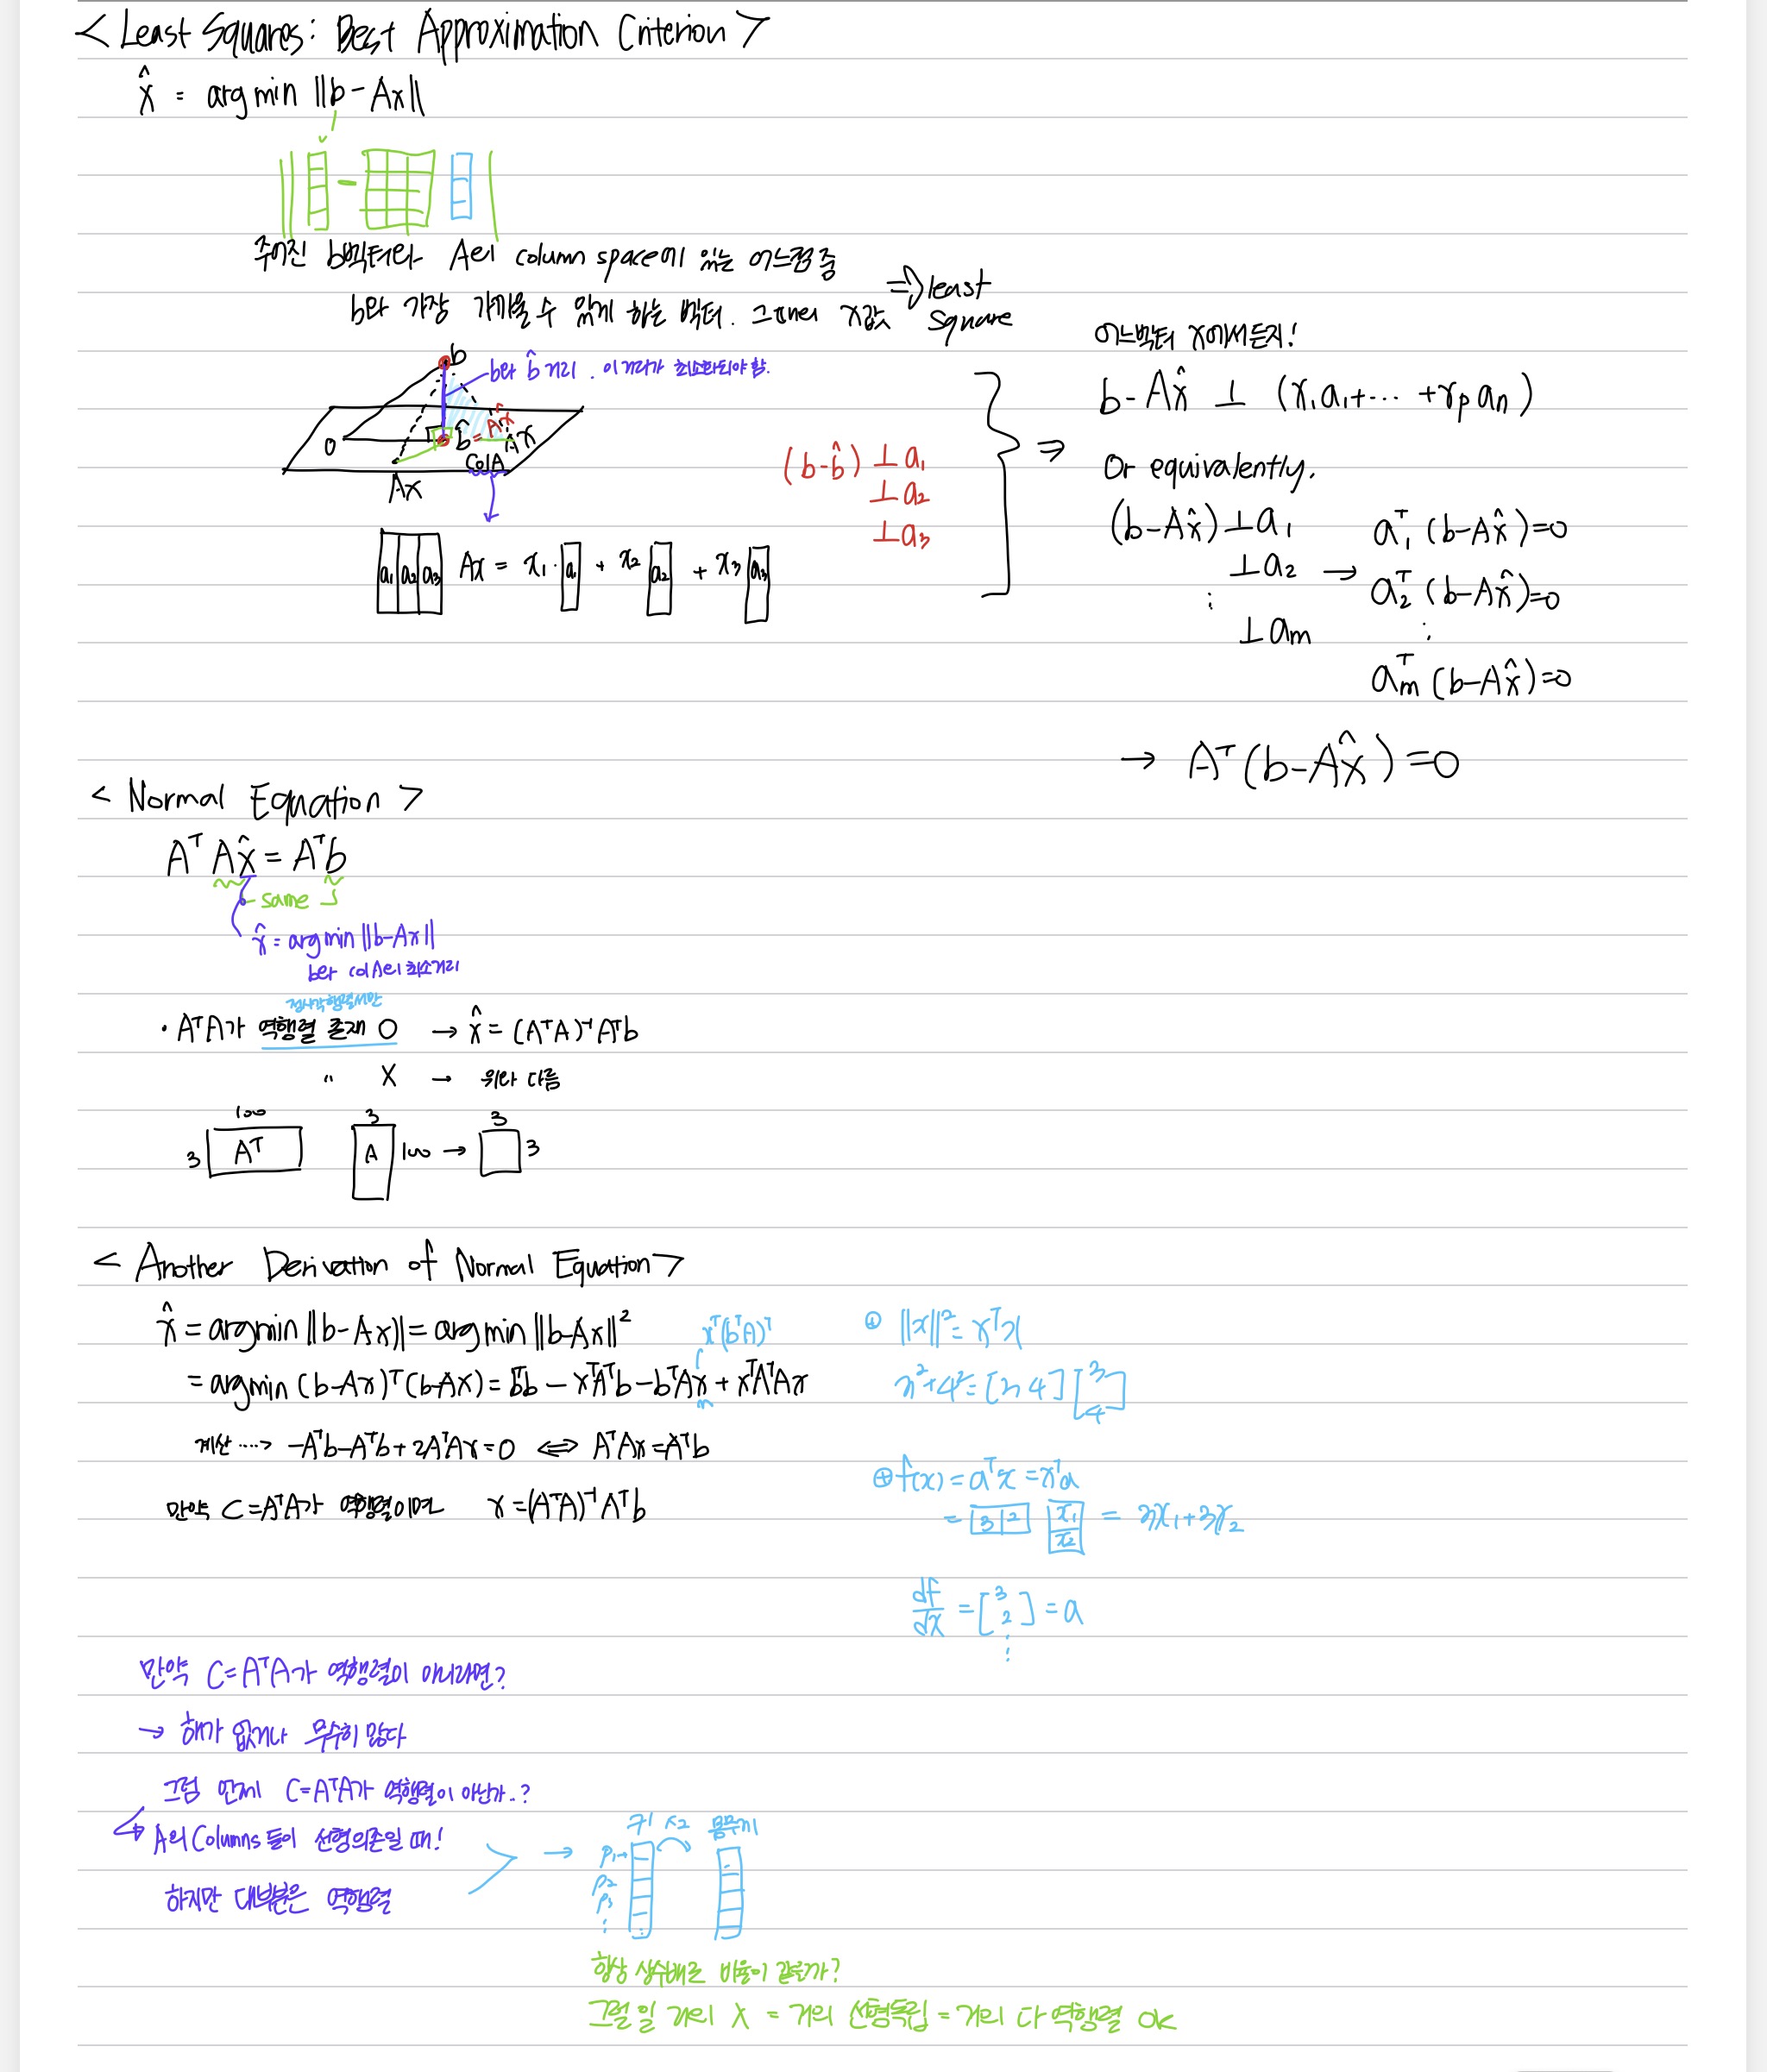 < Least Squares: Best Approximation Criterion >
x̂ = arg min ||b-Ax||
주어진 b벡터와 A의 column space에 있는 어느점 중
b와 가장 가까울 수 있게 하는 벡터. 그때의 x값 ⇒ least square
b
b와 b̂ 거리. 이 거리가 최소화되어야 함.
0
b̂ = Ax̂
Ax
Col A
Ax
a₁ a₂ a₃ Ax = x₁· a₁ + x₂ a₂ + x₃ a₃
(b-b̂) ⊥a₁
⊥a₂
⊥a₃
⇒
어느벡터 x에서든지!
b-Ax̂ ⊥ (x₁a₁+⋯+xₚaₙ)
Or equivalently.
(b-Ax̂)⊥a₁ a₁ᵀ(b-Ax̂)=0
⊥a₂ → a₂ᵀ(b-Ax̂)=0
⋮ ⋮
⊥aₘ aₘᵀ(b-Ax̂)=0
→ Aᵀ(b-Ax̂)=0
< Normal Equation >
AᵀAx̂ = Aᵀb
same
x̂ = arg min ||b-Ax||
b와 colA의 최소거리
정사각행렬서만
· AᵀA가 역행렬 존재 O → x̂ = (AᵀA)⁻¹Aᵀb
" X → 위와 다름
100 3 3
3 Aᵀ A 100 → 3
< Another Derivation of Normal Equation >
x̂ = argmin ||b-Ax|| = argmin ||b-Ax||²
xᵀ(bᵀA)ᵀ
= argmin (b-Ax)ᵀ(b-Ax) = bᵀb - xᵀAᵀb - bᵀAx + xᵀAᵀAx
계산 ····> -Aᵀb-Aᵀb+2AᵀAx=0 ⇔ AᵀAx=Aᵀb
만약 C=AᵀA가 역행렬이면 x=(AᵀA)⁻¹Aᵀb
⊕ ||x||² = xᵀx
3²+4² = [3 4] [3 4]
⊕ f(x) = aᵀx = xᵀa
= 3 2 x₁ x₂ = 3x₁+3x₂
df/dx = [3 2] = a
⋮
만약 C=AᵀA가 역행렬이 아니라면?
→ 해가 없거나 무수히 많다
그럼 언제 C=AᵀA가 역행렬이 아닌가..?
↳ A의 Columns 들이 선형의존일 때!
하지만 대부분은 역행렬
→ 키 x2 몸무게
p₁→
p₂
p₃
⋮
항상 상수배로 비율이 같을까?
그럴 일 거의 X = 거의 선형독립 = 거의 다 역행렬 OK